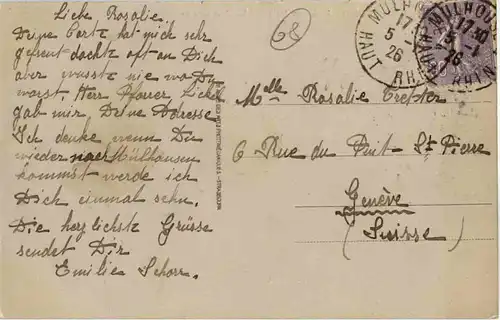 Liebe Rosalie.
Deine Carte hat mich sehr
gefreut dachte oft an Dich
aber wusste nie wo Du
warst, Herr Pfarrer Lickel
gab mir Deine Adresse
Ich denke wenn Du
wieder nach Mülhausen
kommst werde ich
Dich einmal sehn.
Die herzlichste Grüsse
sendet Dir
Emilie Schorr.
68
Mlle Rosalie Trepter
6 Rue du Puit St Pierre
Genève
(Suisse)
MULHOUSE
17 30
5 - 1
26
HAUT RHIN
MULHOUSE
17 30
5 - 1
26
HAUT RHIN